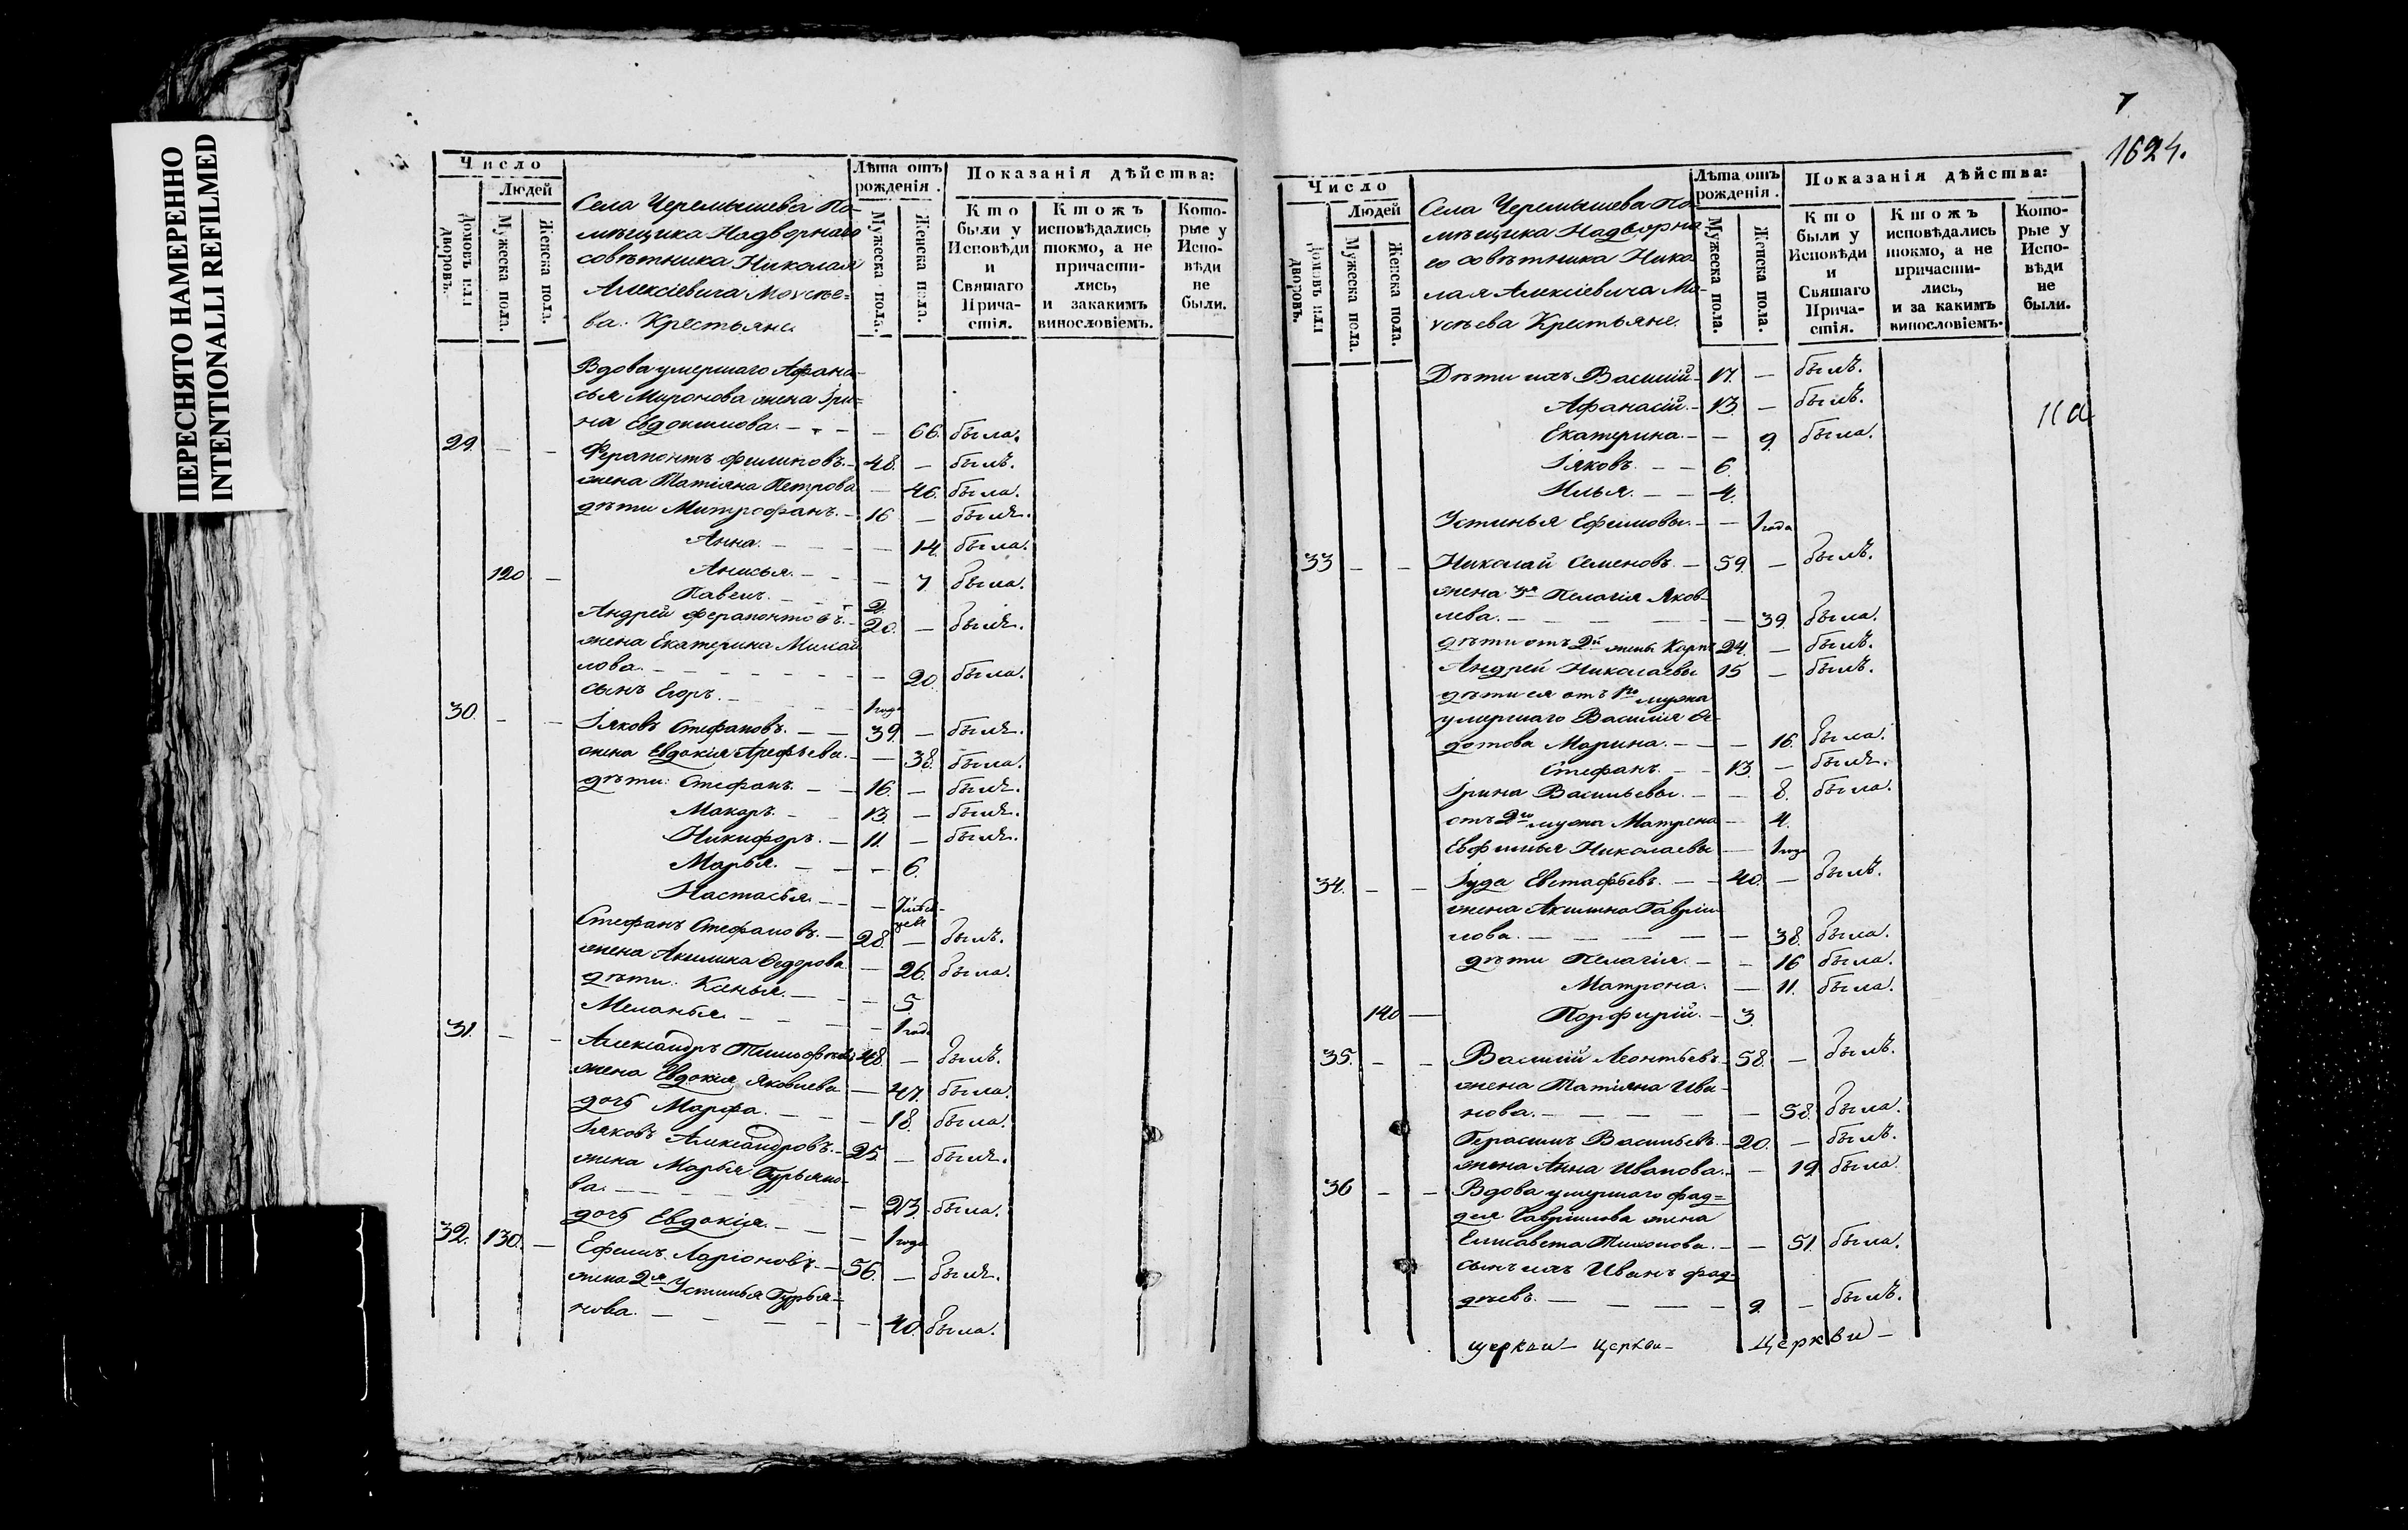 ПЕРЕСНЯТО НАМЕРЕННО
INTENTIONALLI REFILMED
Число
Людей
Домовъ или дворовъ.
Мужеска пола.
Женска пола.
Села Черемышева По-
мѣщика Надворнаго
совѣтника Николая
Алексіевича
ва. Крестьяне
Лѣта отъ рожденія.
Мужеска пола.
Женска пола.
Показанія дѣйства:
Кто были у Исповѣди и Святаго Прича- стія.
Ктожъ исповѣдались токмо, а не причасти- лись, и закакимъ винословіемъ.
Кото- рые у Испо- вѣди не были.
Вдова умершаго Афана-
сья Миронова жена Ири=
на Евдокимова. - - - - 66. была.
29. - - Ферапонтъ Филиповъ. - 48. - былъ.
жена Татіяна Петрова - 46. была.
дѣти Митрофанъ. - 16 - былъ.
Анна. - - - - 14. была.
120 - Анисья. - - - - 7. была.
Павелъ. - - - 2.
Андрей Ферапонтовъ. - 20. - былъ.
жена Екатерина Михай
лова. - - - - - - 20. была.
сынъ Егоръ. - - - - 1 года
30. - - Іяковъ Стефановъ. - - 39. - былъ.
жена Евдокія Арефьева. - - 38. была.
дѣти: Стефанъ. - - 16. - былъ.
Макаръ. - - 13. - былъ.
Никифоръ. - 11. - былъ.
Марья. - - - 6.
Настасья. - - - 7 мѣся- цевъ
Стефанъ Стефановъ. - 28. - былъ.
жена Акилина Федорова. - 26. была.
дѣти: Ксенья. - - - 5.
Меланья. - - - - 1 года
31. - - Александръ 48. - былъ.
жена Евдокія Яковлева - 47. была.
дочь Марфа. - - - 18. была.
Іяковъ Александровъ. - 25. - былъ.
жена Марья Гурьяно-
ва. - - - - - 23. была.
дочь Евдокія. - - - 1 года
32. 130. - Ефимъ Ларіоновъ. - 56. - былъ.
жена 2я Устинья Гурья-
нова. - - - - - 40. была.
7
1624.
Число
Людей
Домовъ или дворовъ.
Мужеска пола.
Женска пола.
Села Черемышева По-
мѣщика Надворна-
го совѣтника Нико-
лая Алексіевича Мо-
Крестьяне.
Лѣта отъ рожденія.
Мужеска пола.
Женска пола.
Показанія дѣйства:
Кто были у Исповѣди и Святаго Прича- стія.
Ктожъ исповѣдались токмо, а не причасти- лись, и за какимъ винословіемъ.
Кото- рые у Испо- вѣди не были.
Дѣти ихъ Василій - 17. - былъ.
Афанасій. - 13. - былъ.
Екатерина. - - 9. была.
Іяковъ. - - 6.
Илья. - - 4.
Устинья Ефимовы. - - 1 года
33 - - Николай Семеновъ. - 59. - былъ.
жена 3я Пелагія Яков-
лева. - - - - - - 39. была.
дѣти отъ 2й жены Карпъ 24. - былъ.
Андрей Николаевы 15 - былъ.
дѣти ея отъ 1го мужа
умершаго Василія Ѳе-
дотова Марина. - - - 16. была.
Стефанъ. - - 13. - былъ.
Ірина Васильевы. - - 8. была.
отъ 2го мужа Матрена - 4.
Евфимья Николаевы - 1 года
34. - - Іуда Евстафьевъ. - - 40. - былъ.
жена Акилина Гавріи-
лова. - - - - - 38. была.
дѣти Пелагія. - - 16 была.
Матрона. - 11. была.
140 - Порфирій. - 3.
35. - - Василій Леонтьевъ. 58. - былъ.
жена Татіяна Ива-
нова. - - - - - 58. была.
Герасимъ Васильевъ. - 20. - былъ.
жена Анна Иванова. - - 19. была.
36 - - Вдова умершаго Фад=
дея Гавріилова жена
Елисавета Тихонова. - - 51. была.
сынъ ихъ Иванъ Фад-
дѣевъ. - - - - 9. - былъ.
церкви - церкви - церкви -